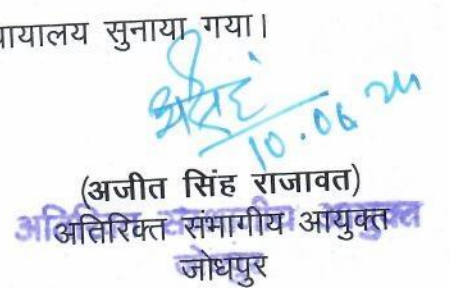 यायालय सुनाया गया।
10.06.24
(अजीत सिंह राजावत)
अतिरिक्त संभागीय आयुक्त
जोधपुर